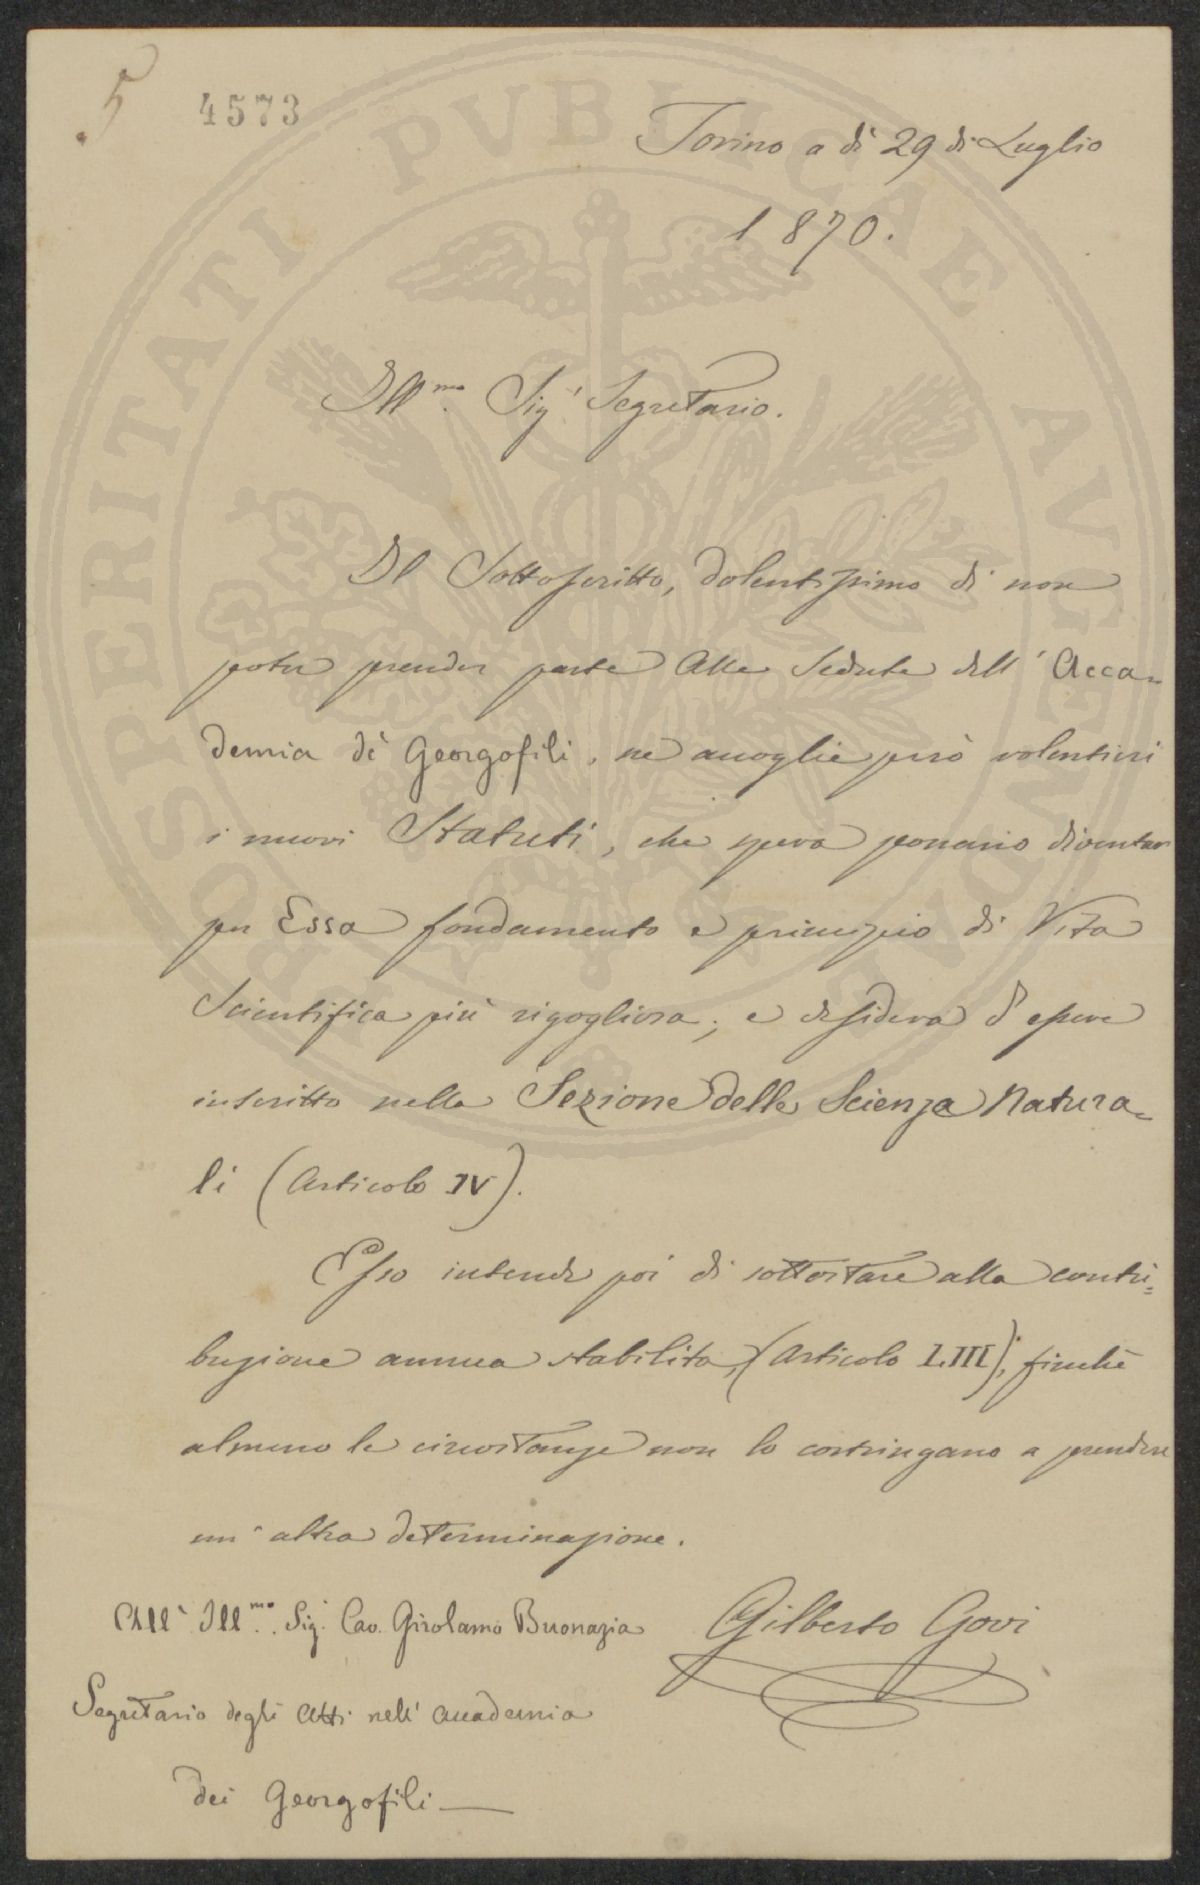 5
4573
PROSPERITATI PVBLICAE AVGENDAE
Torino a dì 29 di Luglio
1870.
Ill.mo Sig.r Segretario.
Il Sottoscritto, dolentissimo di non
poter prender parte alle Sedute dell'Acca=
demia de' Georgofili, ne accoglie però volentieri
i nuovi Statuti, che spera potranno diventar
per Essa fondamento e principio di Vita
Scientifica più rigogliosa; e desidera d'essere
inscritto nella Sezione delle Scienze Natura=
li (Articolo IV).
Esso intende poi di sottostare alla contri=
buzione annua stabilita, (Articolo LIII), finchè
almeno le circostanze non lo costringano a prendere
un'altra determinazione.
All' Ill.mo Sig.r Cav. Girolamo Buonazia
Gilberto Govi
Segretario degli Atti nell'Accademia
dei Georgofili —